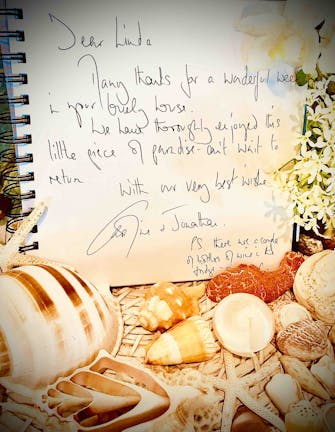 Dear Linda
Many thanks for a wonderful week
in your lovely house.
We have thoroughly enjoyed this
little piece of paradise - can't wait to
return
With our very best wishes
& Jonathan.
PS. there are a couple
of bottles of wine in the
fridge